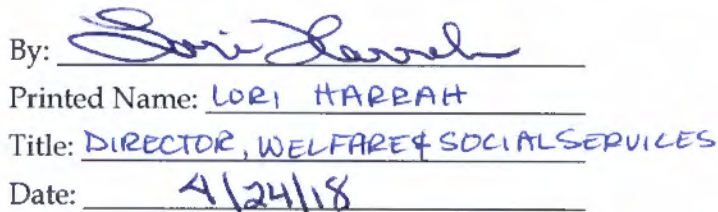 By: Lori Harrah
Printed Name: LORI HARRAH
Title: DIRECTOR, WELFARE & SOCIAL SERVICES
Date: 4/24/18